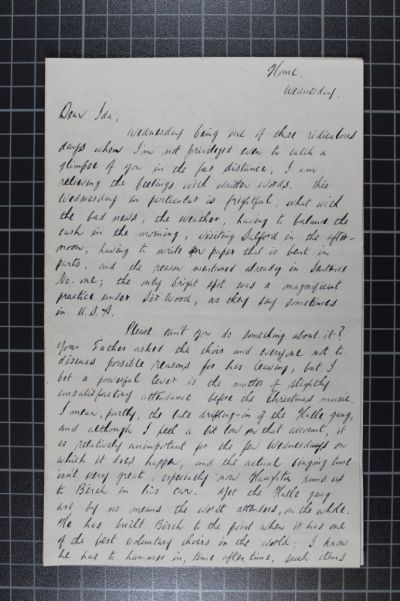 Home.
Wednesday.
Dear Ida,
Wednesday being one of those ridiculous
days when I'm not privileged even to catch a
glimpse of you in the far distance, I am
relieving the feelings with written words. This
Wednesday in particular is frightful, what with
the bad news, the weather, having to balance the
cash in the morning, visiting Salford in the after-
noon, having to write on paper that is bent in
parts, and the reason mentioned already in Sentence
No. one; the only bright spot was a magnificent
practice under Sir Wood, as they say sometimes
in U.S.A.
Please can't you do something about it?
Your Father asked the choir and everyone not to
discuss possible reasons for his leaving, but I
bet a powerful lever is the matter of slightly
unsatisfactory attendance before the Christmas music.
I mean, partly, the late drifting-in of the Halle gang,
and although I feel a bit low on that account, it
is relatively unimportant for the few Wednesdays on
which it does happen, and the actual singing time
isn't very great, especially now Haughton runs us
to Birch in his car. Yet the Halle gang
are by no means the worst attenders, on the whole.
He has built Birch to the point where it has one
of the best voluntary choirs in the world; I know
he has to hammer in, time after time, such items